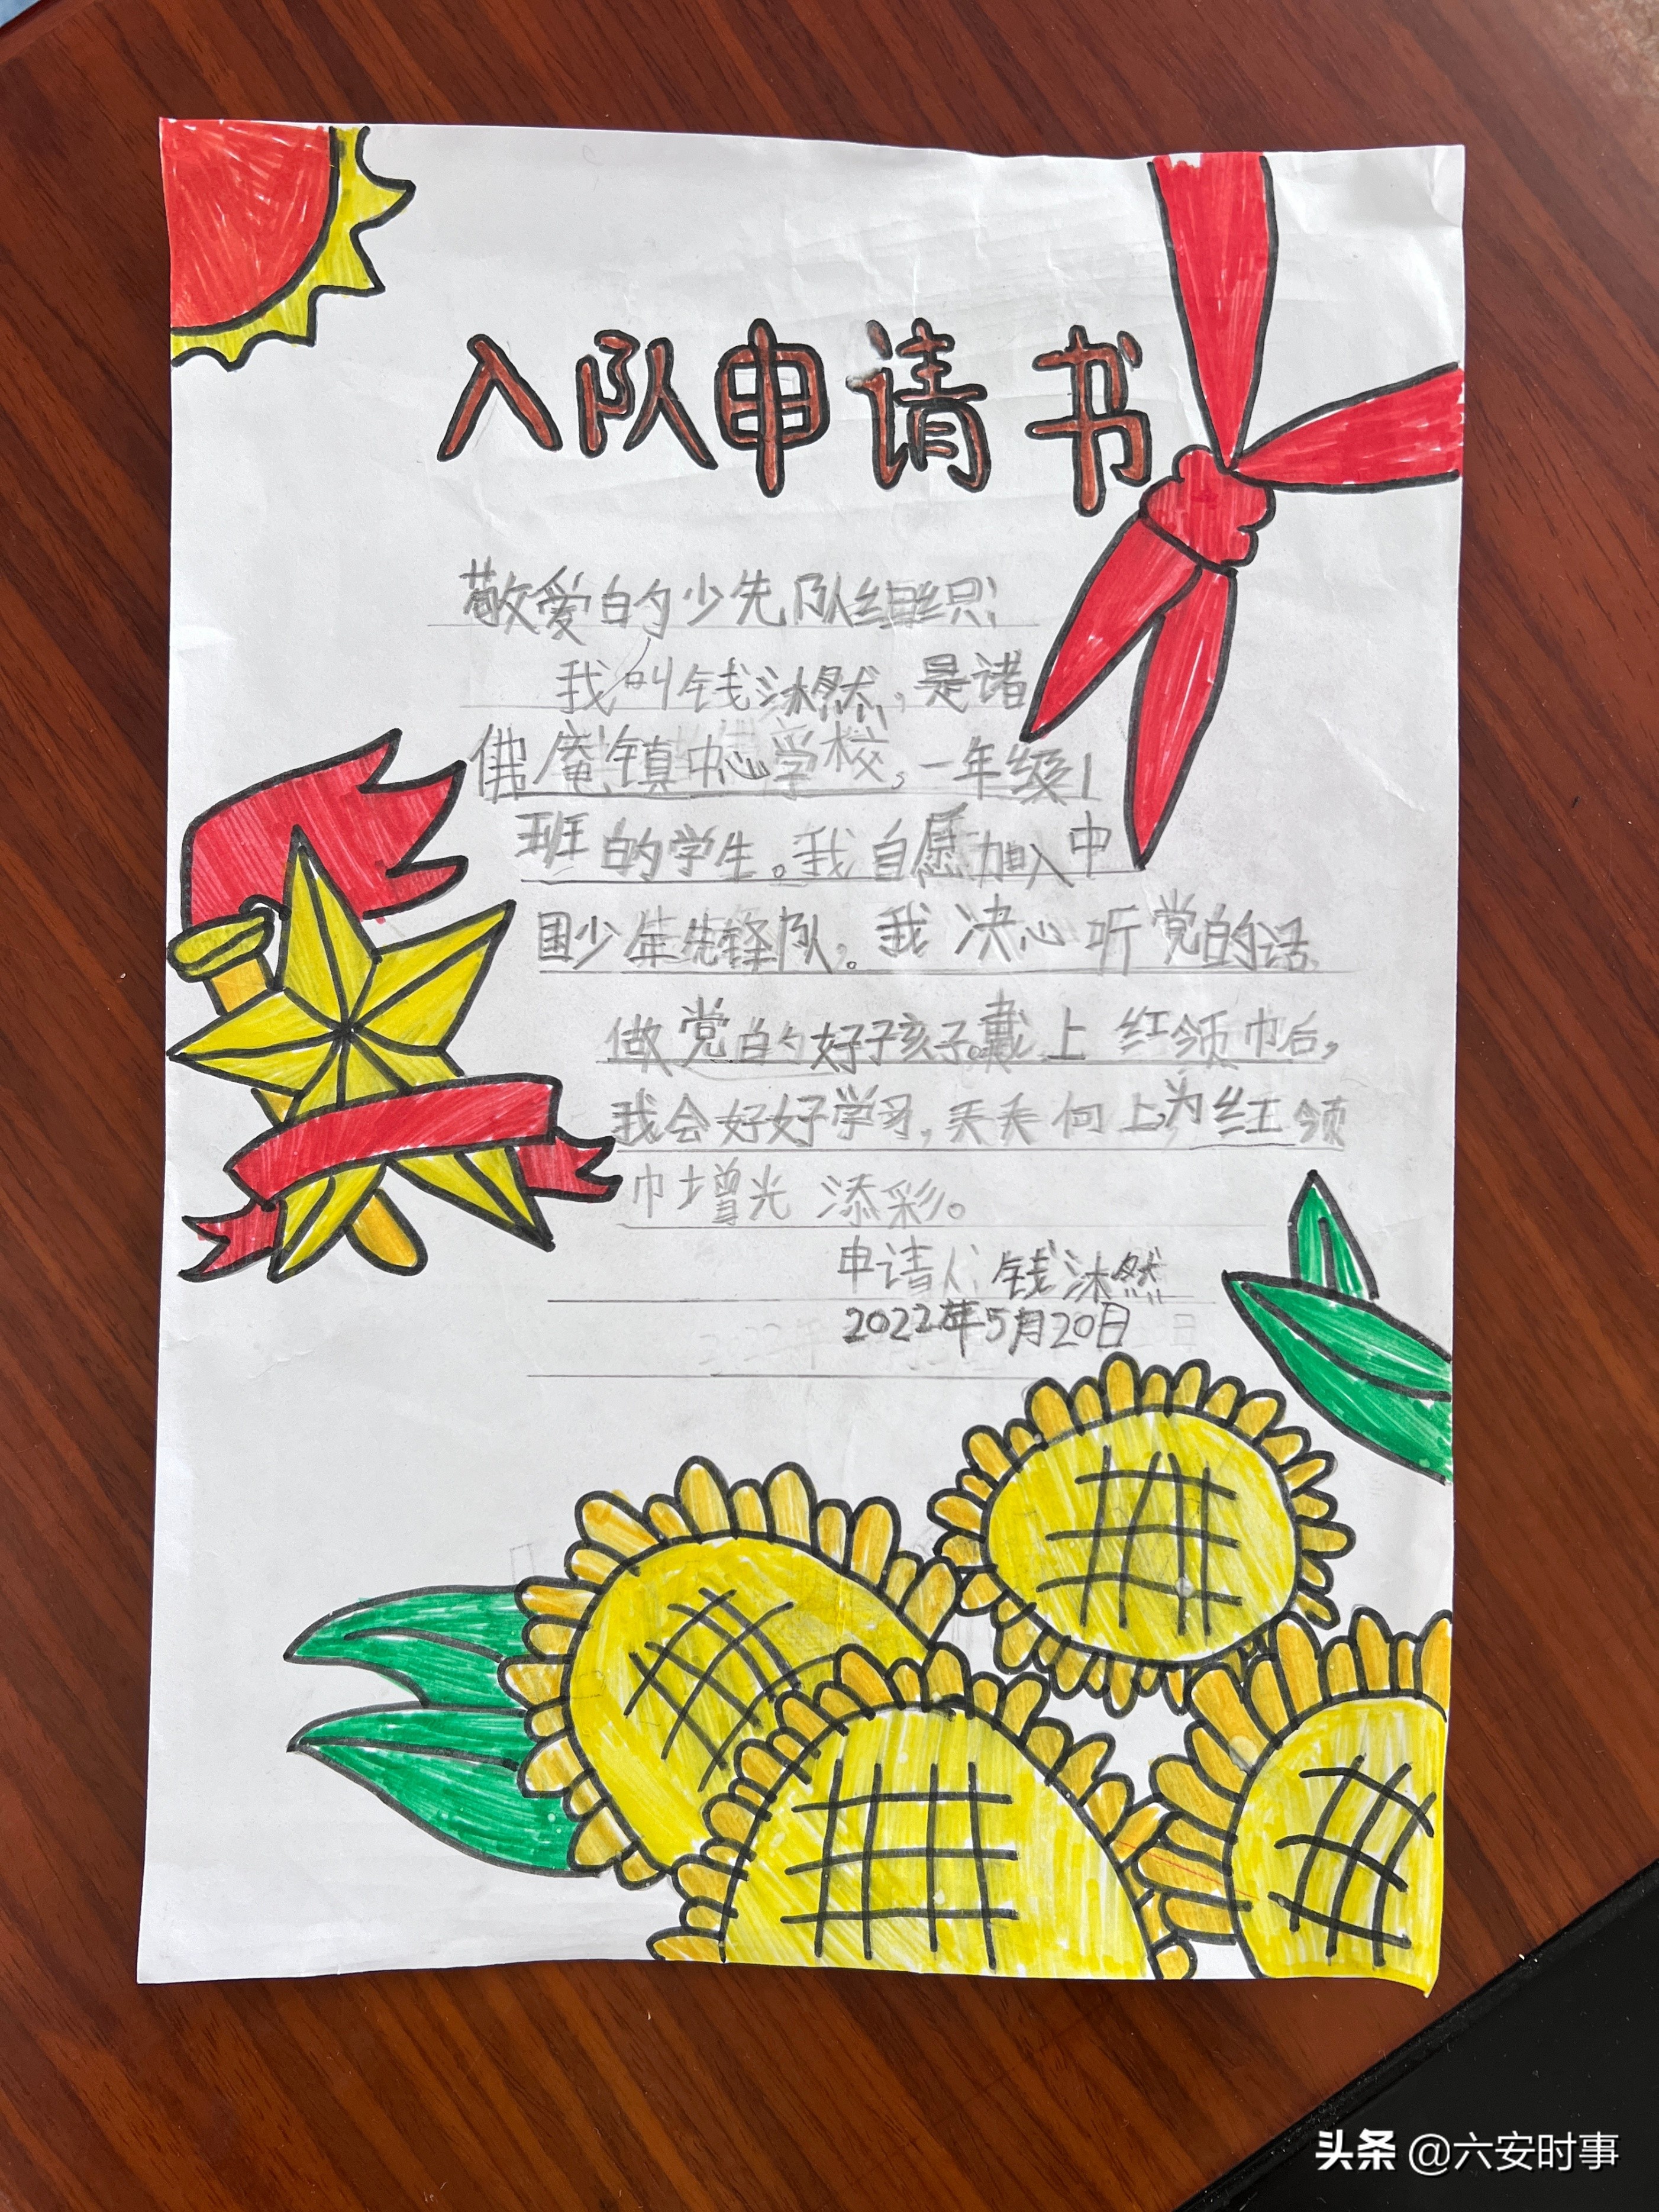 入队申请书
敬爱的少先队组织:
我叫钱沐然,是诸
佛庵镇中心学校,一年级1
班的学生。我自愿加入中
国少年先锋队。我决心听党的话,
做党的好孩子。戴上红领巾后,
我会好好学习,天天向上,为红领
巾增光添彩。
申请人:钱沐然
2022年5月20日
头条 @六安时事